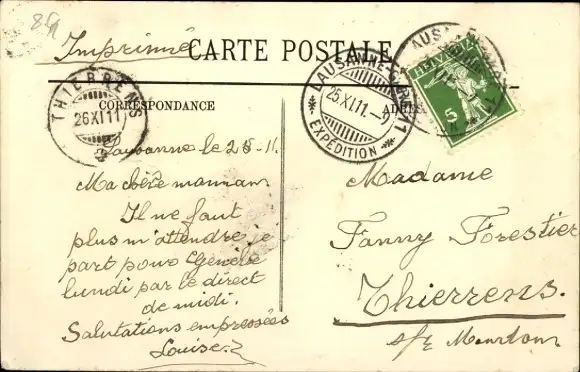 Imprimé
CARTE POSTALE
THIERRENS
26 XI 11
LAUSANNE
25 XI 11
EXPÉDITION
HELVETIA
5
CORRESPONDANCE
Lausanne le 25-11.
Ma chère maman
Il ne faut
plus m'attendre je
part pour Genève
lundi par le direct
de midi.
Salutations empressées
Louise
Madame
Fanny Forestier
Thierrens.